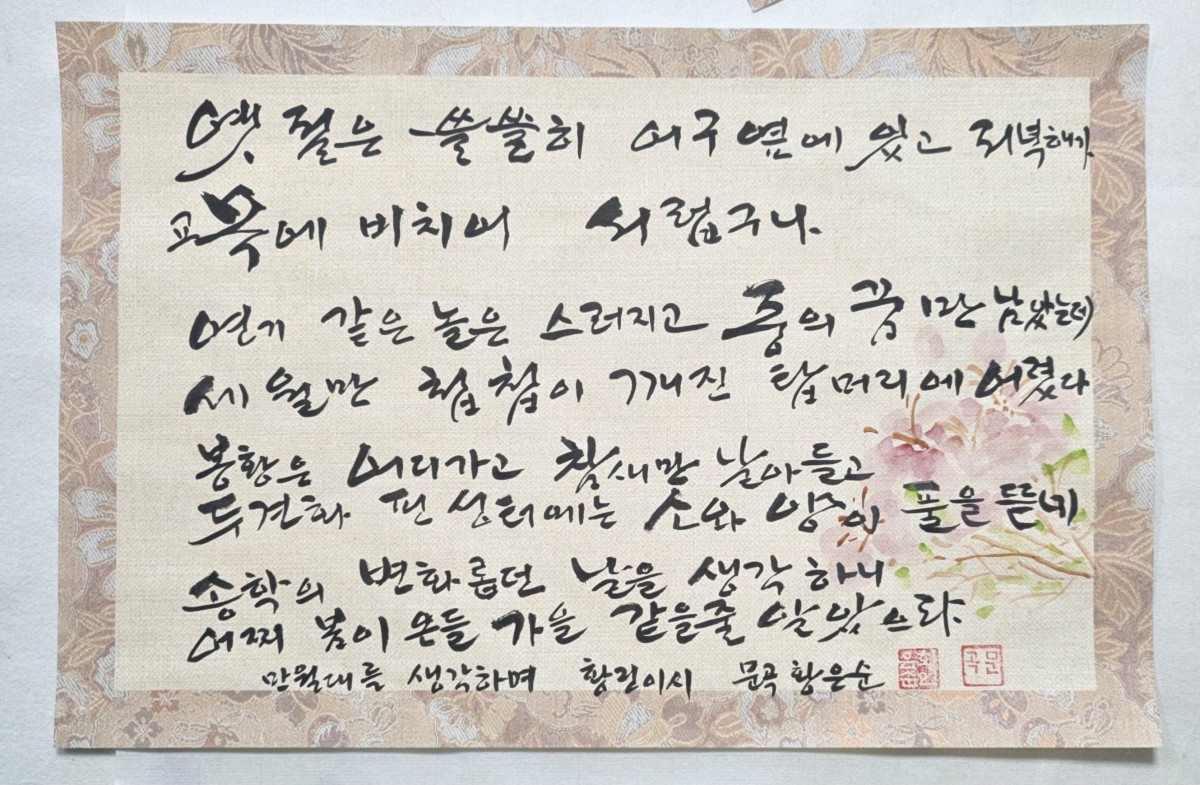 옛 절은 쓸쓸히 어구 옆에 있고 저녁해가
고목에 비치어 서럽구나.
연기 같은 놀은 스러지고 중의 꿈만 남았는데
세월만 첩첩이 깨진 탑머리에 어렸다
봉황은 어디가고 참새만 날아들고
두견화 핀 성터에는 소와 양이 풀을 뜯네
송학의 번화롭던 날을 생각하니
어찌 봄이 온들 가을 같을줄 알았으랴.
만월대를 생각하며 황진이시 문곡 황은순